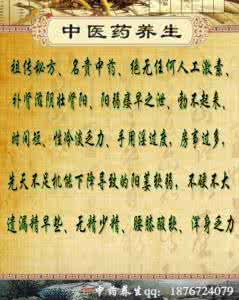 中医药养生
祖传秘方、名贵中药、绝无任何人工激素、
补肾滋阴壮肾阳、阳弱痿早之泄、勃不起来、
时间短、性冷淡乏力、手用淫过度，房事过多，
先天不足机能下降导致的阳萎软弱，不硬不大
遗漏精早些、无精少精、腰膝酸软、浑身乏力
中药养生qq：1876724079